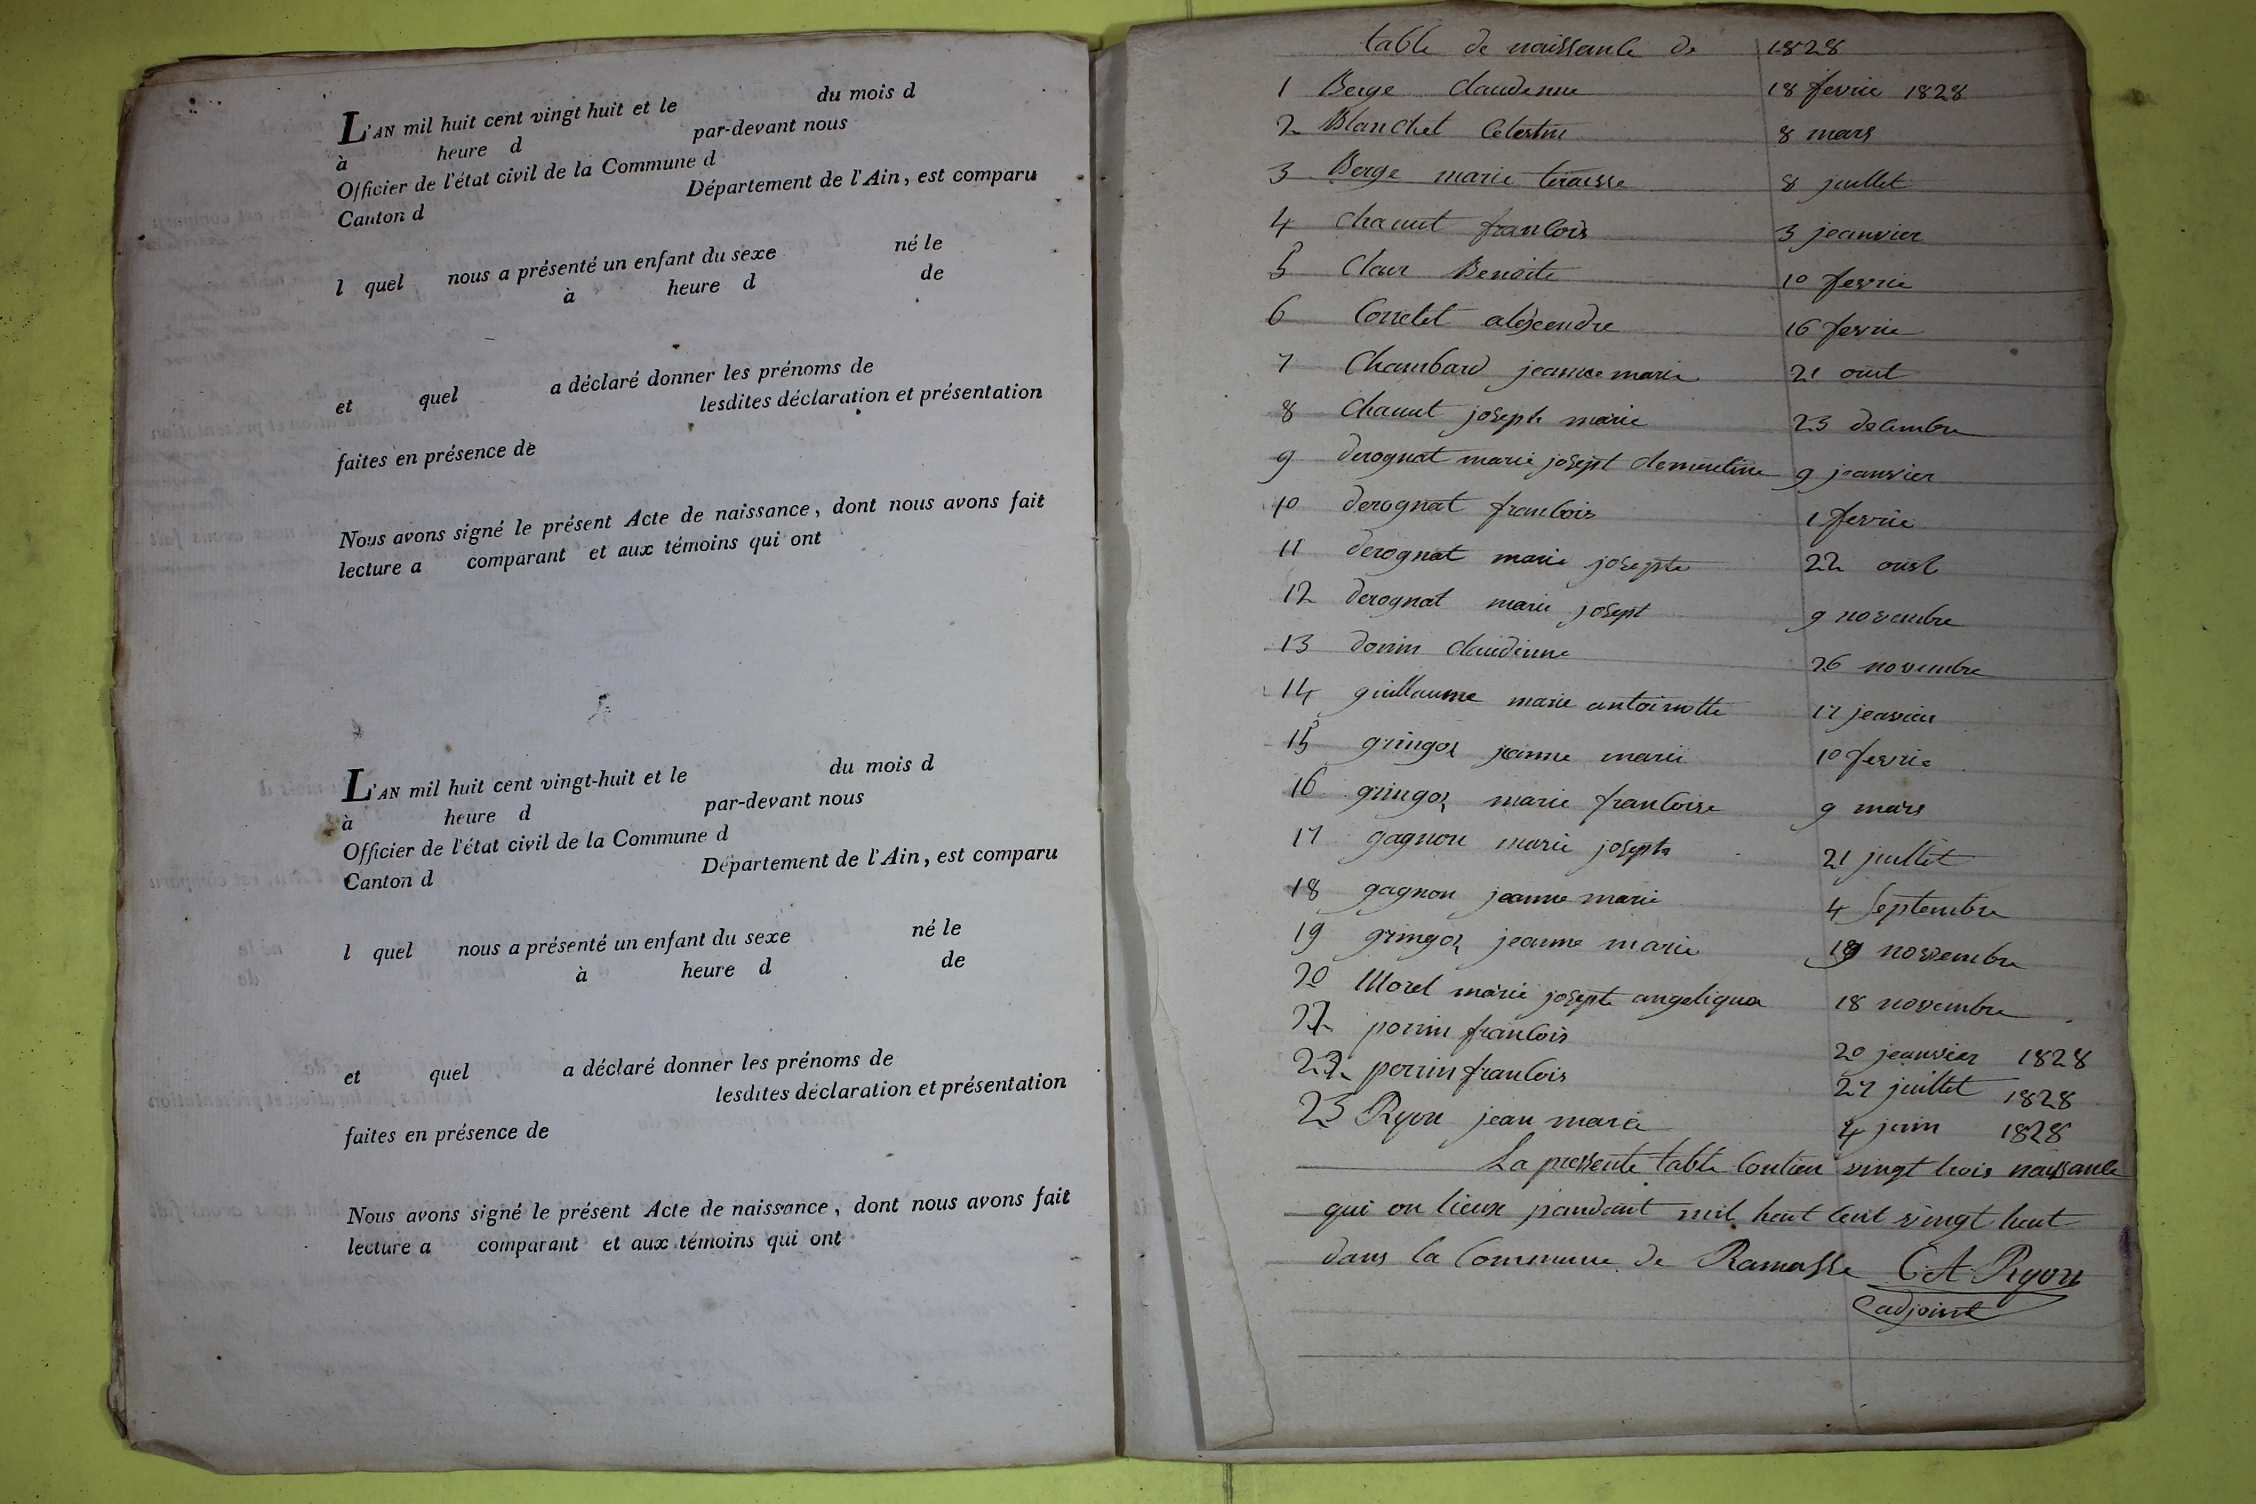 L'AN mil huit cent vingt huit et le du mois d
à heure d par-devant nous
Officier de l'état civil de la Commune d
Canton d Département de l'Ain, est comparu
l quel nous a présenté un enfant du sexe né le
à heure d de
et quel a déclaré donner les prénoms de
lesdites déclaration et présentation
faites en présence de
Nous avons signé le présent Acte de naissance, dont nous avons fait
lecture a comparant et aux témoins qui ont
L'AN mil huit cent vingt-huit et le du mois d
à heure d par-devant nous
Officier de l'état civil de la Commune d
Canton d Département de l'Ain, est comparu
l quel nous a présenté un enfant du sexe né le
à heure d de
et quel a déclaré donner les prénoms de
lesdites déclaration et présentation
faites en présence de
Nous avons signé le présent Acte de naissance, dont nous avons fait
lecture a comparant et aux témoins qui ont
table de naissance de 1828
1 Berge claudinne 18 fevrie 1828
2 Blanchet Celestin 8 mars
3 Berge marie teraisse 8 juillet
4 chanut francois 3 jeanvier
5 Clair Benoite 10 fevrie
6 Corretet alexcendre 16 fevrie
7 Chambard jeanne marie 21 out
8 Chanut joseph marie 23 decembre
9 derognat marie josept clementine 9 jeanvier
10 derognat francois 1 fevrie
11 derognat marie josepte 22 oust
12 derognat marie josept 9 novembre
13 donin claudinne 26 novembre
14 guillaume marie antoinotte 17 jeavier
15 gringoz jeanne marie 10 fevrie
16 gringoz marie francoise 9 mars
17 gagnon marie josepte 21 juillet
18 gagnon jeanne marie 4 Septembre
19 gringoz jeanne marie novembre
20 Morel marie josepte angeliqua 18 novembre
21 perrin francois 20 jeanvier 1828
22 perrin francois 27 juillet 1828
23 Ryon jean marie 4 juin 1828
La pressente table contien vingt trois naissance
qui on lieux pandant mil huit cent vingt huit
dans la Commune de Ramasse C A Ryon
adjoint